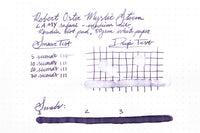 Robert Oster Mystic Storm
LAMY safari - medium nib
Rhodia dot pad, 80gsm white paper
Smear Test
Drip Test
5 seconds
10 seconds
20 seconds
30 seconds
Swabs:
2
3